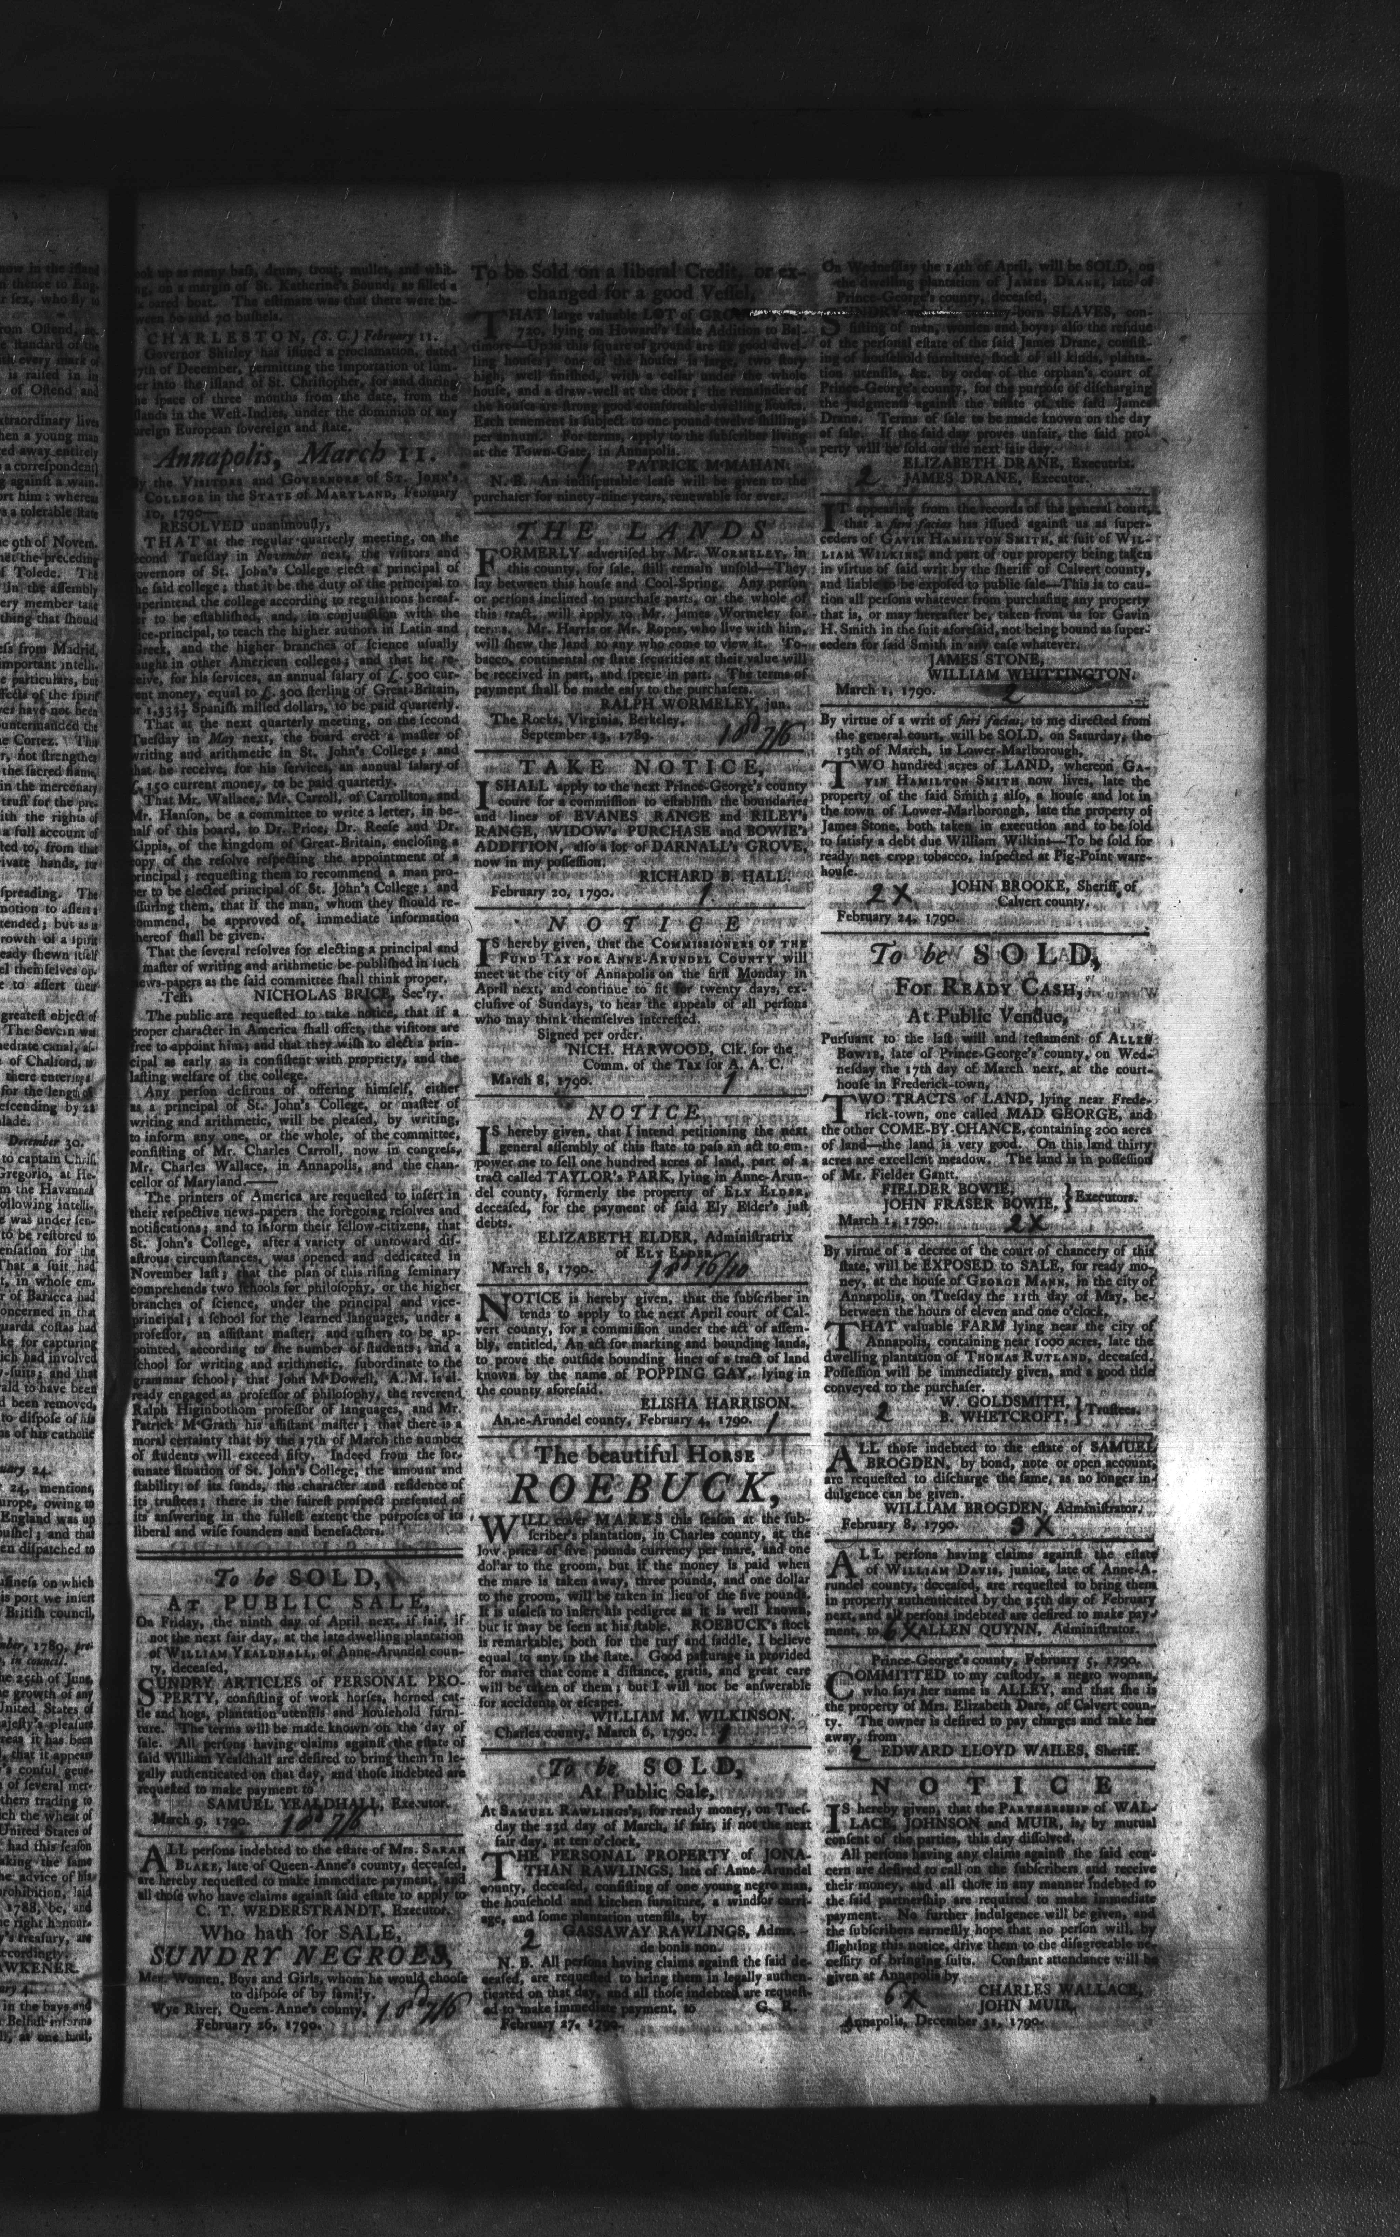 now in the island
n thence to Eng-
r sex, who fly to
rom Ostend, as
e standard of the
ith every mark of
is raised in in
of Ostend and
xtraordinary lives
hen a young man
ed away entirely
a correspondent)
g against a wain.
ort him: whereas
s a tolerable state
e 9th of Novem.
net the preceding
f Toledo. The
in the assembly
ery member take
thing that should
ess from Madrid,
important intelli-
e particulars, but
ffects of the spirit
ves have not been
untermanded the
e Cortez. This
r, not strengthen
the sacred flame,
in the mercenary
trust for the pre-
ith the rights of
a full account of
ted to, from that
rivate hands, to
spreading. The
motion to assert
tended; but as a
rowth of a spirit
eady shewn itself
el themselves op-
e to assert their
greatest object of
The Severn was
mediate canal, as
of Chalford, at
there entering a
for the length of
escending by 28
lade.
December 30.
to captain Christ
Gregorio, at He-
m the Havannah
ollowing intelli-
e was under sen-
to be restored to
ensation for the
That a suit had
t, in whole em-
r of Baracca had
oncerned in that
guarda costas had
ke for capturing
ich had involved
y-suits; and that
ald to have been
d been removed,
to dispose of his
ns of his catholic
uary 24.
24, mentions,
urope, owing to
England was up
bushel; and that
en dispatched to
usiness on which
is port we insert
British council,
mber, 1789, pre-
in council.
ue 25th of June
e growth of any
United States of
ajesty's pleasure
reas it has been
, that it appears
's consul gene-
of several mer-
thers trading to
ich the wheat of
United States of
had this season
aking the same
he advice of his
rohibition, laid
1788, be, and
e right honour-
y's treasury, are
ccordingly.
AWKENER.
ary 4.
in the bays and
Belfast informs
ll, at one haul,
ook up as many bass, drum, trout, mullet, and whit-
ng, on a margin of St. Katherine's Sound, as filled a
oared boat. The estimate was that there were be-
ween 60 and 70 bushels.
CHARLESTON, (S. C.) February 11.
Governor Shirley has issued a proclamation, dated
7th of December, permitting the importation of lum-
er into the island of St. Christopher, for and during
he space of three months from the date, from the
slands in the West-Indies, under the dominion of any
oreign European sovereign and state.
Annapolis, March 11.
By the VISITORS and GOVERNORS of ST. JOHN'S
COLLEGE in the STATE of MARYLAND, February
10, 1790—
RESOLVED unanimously,
THAT at the regular quarterly meeting, on the
second Tuesday in November next, the visitors and
governors of St. John's College elect a principal of
the said college; that it be the duty of the principal to
superintend the college according to regulations hereaf-
er to be established, and, in conjunction with the
vice-principal, to teach the higher authors in Latin and
Greek, and the higher branches of science usually
taught in other American colleges; and that he re-
ceive, for his services, an annual salary of £. 500 cur-
rent money, equal to £. 300 sterling of Great-Britain,
or 1,333⅓ Spanish milled dollars, to be paid quarterly.
That at the next quarterly meeting, on the second
Tuesday in May next, the board erect a master of
writing and arithmetic in St. John's College; and
that he receive, for his services, an annual salary of
£. 150 current money, to be paid quarterly.
That Mr. Wallace, Mr. Carroll, of Carrollton, and
Mr. Hanson, be a committee to write a letter, in be-
half of this board, to Dr. Price, Dr. Reese and Dr.
Kippis, of the kingdom of Great-Britain, enclosing a
copy of the resolve respecting the appointment of a
principal; requesting them to recommend a man pro-
per to be elected principal of St. John's College; and
assuring them, that if the man, whom they should re-
commend, be approved of, immediate information
thereof shall be given.
That the several resolves for electing a principal and
a master of writing and arithmetic be published in such
news-papers as the said committee shall think proper.
Test. NICHOLAS BRICE, Sec'ry.
The public are requested to take notice, that if a
proper character in America shall offer, the visitors are
free to appoint him; and that they wish to elect a prin-
cipal as early as is consistent with propriety, and the
lasting welfare of the college.
Any person desirous of offering himself, either
as a principal of St. John's College, or master of
writing and arithmetic, will be pleased, by writing,
to inform any one, or the whole, of the committee,
consisting of Mr. Charles Carroll, now in congress,
Mr. Charles Wallace, in Annapolis, and the chan-
cellor of Maryland.——
The printers of America are requested to insert in
their respective news-papers the foregoing resolves and
notifications; and to inform their fellow-citizens, that
St. John's College, after a variety of untoward dis-
astrous circumstances, was opened and dedicated in
November last; that the plan of this rising seminary
comprehends two schools for philosophy, or the higher
branches of science, under the principal and vice-
principal; a school for the learned languages, under a
professor, an assistant master, and ushers to be ap-
pointed, according to the number of students; and a
school for writing and arithmetic, subordinate to the
grammar school; that John M'Dowell, A. M. is al-
ready engaged as professor of philosophy, the reverend
Ralph Higinbothom professor of languages, and Mr.
Patrick M'Grath his assistant master; that there is a
moral certainty that by the 17th of March the number
of students will exceed fifty. Indeed from the for-
tunate situation of St. John's College, the amount and
stability of its funds, the character and residence of
its trustees; there is the fairest prospect presented of
its answering in the fullest extent the purposes of its
liberal and wise founders and benefactors.
To be SOLD,
AT PUBLIC SALE,
On Friday, the ninth day of April next, if fair, if
not the next fair day, at the late dwelling plantation
of WILLIAM YEALDHALL, of Anne-Arundel coun-
ty, deceased,
SUNDRY ARTICLES of PERSONAL PRO-
PERTY, consisting of work horses, horned cat-
tle and hogs, plantation utensils and houshold furni-
ture. The terms will be made known on the day of
sale. All persons having claims against the estate of
said William Yealdhall are desired to bring them in le-
gally authenticated on that day, and those indebted are
requested to make payment to
SAMUEL YEALDHALL, Executor.
March 9, 1790. 1 od 7/6
ALL persons indebted to the estate of Mrs. SARAH
BLAKE, late of Queen-Anne's county, deceased,
are hereby requested to make immediate payment, and
all those who have claims against said estate to apply to
C. T. WEDERSTRANDT, Executor.
Who hath for SALE,
SUNDRY NEGROES,
Men, Women, Boys and Girls, whom he would choose
to dispose of by family.
Wye River, Queen-Anne's county, 1 od 7/6
February 26, 1790.
To be Sold on a liberal Credit, or ex-
changed for a good Vessel,
THAT large valuable LOT of
720, lying on Howard's Late Addition to Bal-
timore—Upon this square of ground are six good dwel-
ling houses; one of the houses is large, two story
high, well finished, with a cellar under the whole
house, and a draw-well at the door; the remainder of
the houses are strong good comfortable dwelling houses.
Each tenement is subject to one pound twelve shillings
per annum. For terms, apply to the subscriber living
at the Town-Gate, in Annapolis.
1 PATRICK M'MAHAN.
N. B. An indisputable lease will be given to the
purchaser for ninety-nine years, renewable for ever.
THE LANDS
FORMERLY advertised by Mr. WORMELEY, in
this county, for sale, still remain unsold—They
lay between this house and Cool-Spring. Any person
or persons inclined to purchase parts, or the whole of
this tract, will apply to Mr. James Wormeley for
terms. Mr. Harris or Mr. Roper, who live with him,
will shew the land to any who come to view it. To-
bacco, continental or state securities at their value will
be received in part, and specie in part. The terms of
payment shall be made easy to the purchasers.
RALPH WORMELEY, jun.
The Rocks, Virginia, Berkeley,
September 13, 1789. 1 od 7/6
TAKE NOTICE,
I SHALL apply to the next Prince-George's county
court for a commission to establish the boundaries
and lines of EVANES RANGE and RILEY's
RANGE, WIDOW's PURCHASE and BOWIE's
ADDITION, also a lot of DARNALL's GROVE,
now in my possession.
RICHARD B. HALL.
February 20, 1790. 1
NOTICE
IS hereby given, that the COMMISSIONERS OF THE
FUND TAX FOR ANNE-ARUNDEL COUNTY will
meet at the city of Annapolis on the first Monday in
April next, and continue to sit for twenty days, ex-
clusive of Sundays, to hear the appeals of all persons
who may think themselves interested.
Signed per order.
NICH. HARWOOD, Clk. for the
Comm. of the Tax for A. A. C.
March 8, 1790. 1
NOTICE
IS hereby given, that I intend petitioning the next
general assembly of this state to pass an act to em-
power me to sell one hundred acres of land, part of a
tract called TAYLOR's PARK, lying in Anne-Arun-
del county, formerly the property of ELY ELDER,
deceased, for the payment of said Ely Elder's just
debts.
ELIZABETH ELDER, Administratrix
of ELY ELDER.
March 8, 1790. 1 od 16/10
NOTICE is hereby given, that the subscriber in
tends to apply to the next April court of Cal-
vert county, for a commission under the act of assem-
bly, entitled, An act for marking and bounding lands,
to prove the outside bounding lines of a tract of land
known by the name of POPPING GAY, lying in
the county aforesaid.
ELISHA HARRISON.
Anne-Arundel county, February 4, 1790. 1
The beautiful HORSE
ROEBUCK,
WILL cover MARES this season at the sub-
scriber's plantation, in Charles county, at the
low price of five pounds currency per mare, and one
dollar to the groom, but if the money is paid when
the mare is taken away, three pounds, and one dollar
to the groom, will be taken in lieu of the five pounds.
It is useless to insert his pedigree as it is well known,
but it may be seen at his stable. ROEBUCK's stock
is remarkable, both for the turf and saddle, I believe
equal to any in the state. Good pasturage is provided
for mares that come a distance, gratis, and great care
will be taken of them; but I will not be answerable
for accidents or escapes.
WILLIAM M. WILKINSON.
Charles county, March 6, 1790. 1
To be SOLD,
At Public Sale,
At SAMUEL RAWLINGS's, for ready money, on Tues-
day the 23d day of March, if fair, if not the next
fair day, at ten o'clock,
THE PERSONAL PROPERTY of JONA-
THAN RAWLINGS, late of Anne-Arundel
county, deceased, consisting of one young negro man,
the household and kitchen furniture, a windsor carri-
age, and some plantation utensils, by
2 GASSAWAY RAWLINGS, Admr.
de bonis non.
N. B. All persons having claims against the said de-
ceased, are requested to bring them in legally authen-
ticated on that day, and all those indebted are request-
ed to make immediate payment, to G. R.
February 27, 1790.
On Wednesday the 14th of April, will be SOLD, on
the dwelling plantation of JAMES DRANE, late of
Prince-George's county, deceased,
SUNDRY born SLAVES, con-
sisting of men, women and boys; also the residue
of the personal estate of the said James Drane, consist-
ing of household furniture, stock of all kinds, planta-
tion utensils, &c. by order of the orphan's court of
Prince-George's county, for the purpose of discharging
the judgments against the estate of the said James
Drane. Terms of sale to be made known on the day
of sale. If the said day proves unfair, the said pro-
perty will be sold on the next fair day.
ELIZABETH DRANE, Executrix.
2 JAMES DRANE, Executor.
IT appearing from the records of the general court,
that a fieri facias has issued against us as super-
ceders of GAVIN HAMILTON SMITH, at suit of WIL-
LIAM WILKINS, and part of our property being taken
in virtue of said writ by the sheriff of Calvert county,
and liable to be exposed to public sale—This is to cau-
tion all persons whatever from purchasing any property
that is, or may hereafter be, taken from us for Gavin
H. Smith in the suit aforesaid, not being bound as super-
ceders for said Smith in any case whatever.
JAMES STONE,
WILLIAM WHITTINGTON.
March 1, 1790. 2
By virtue of a writ of fieri facias, to me directed from
the general court, will be SOLD, on Saturday, the
13th of March, in Lower-Marlborough,
TWO hundred acres of LAND, whereon GA-
VIN HAMILTON SMITH now lives, late the
property of the said Smith; also, a house and lot in
the town of Lower-Marlborough, late the property of
James Stone, both taken in execution and to be sold
to satisfy a debt due William Wilkins—To be sold for
ready net crop tobacco, inspected at Pig-Point ware-
house.
2 X JOHN BROOKE, Sheriff of
Calvert county.
February 24, 1790.
To be SOLD,
FOR READY CASH,
At Public Vendue,
Pursuant to the last will and testament of ALLEN
BOWIE, late of Prince-George's county, on Wed-
nesday the 17th day of March next, at the court-
house in Frederick-town,
TWO TRACTS of LAND, lying near Frede-
rick-town, one called MAD GEORGE, and
the other COME-BY-CHANCE, containing 200 acres
of land—the land is very good. On this land thirty
acres are excellent meadow. The land is in possession
of Mr. Fielder Gantt.
FIELDER BOWIE,
JOHN FRASER BOWIE, } Executors.
March 1, 1790. 2 X
By virtue of a decree of the court of chancery of this
state, will be EXPOSED to SALE, for ready mo-
ney, at the house of GEORGE MANN, in the city of
Annapolis, on Tuesday the 11th day of May, be-
between the hours of eleven and one o'clock,
THAT valuable FARM lying near the city of
Annapolis, containing near 1000 acres, late the
dwelling plantation of THOMAS RUTLAND, deceased.
Possession will be immediately given, and a good title
conveyed to the purchaser.
2 W. GOLDSMITH,
B. WHETCROFT, } Trustees.
ALL those indebted to the estate of SAMUEL
BROGDEN, by bond, note or open account,
are requested to discharge the same, as no longer in-
dulgence can be given.
WILLIAM BROGDEN, Administrator.
February 8, 1790. 3 X
ALL persons having claims against the estate
of WILLIAM DAVIS, junior, late of Anne-A-
rundel county, deceased, are requested to bring them
in properly authenticated by the 25th day of February
next, and all persons indebted are desired to make pay-
ment, to 6X ALLEN QUYNN, Administrator.
Prince-George's county, February 5, 1790.
COMMITTED to my custody, a negro woman,
who says her name is ALLEY, and that she is
the property of Mrs. Elizabeth Dare, of Calvert coun-
ty. The owner is desired to pay charges and take her
away, from
2 EDWARD LLOYD WAILES, Sheriff.
NOTICE
IS hereby given, that the PARTNERSHIP of WAL-
LACE, JOHNSON and MUIR, is, by mutual
consent of the parties, this day dissolved.
All persons having any claims against the said con-
cern are desired to call on the subscribers and receive
their money, and all those in any manner indebted to
the said partnership are required to make immediate
payment. No further indulgence will be given, and
the subscribers earnestly hope that no person will, by
slighting this notice, drive them to the disagreeable ne-
cessity of bringing suits. Constant attendance will be
given at Annapolis by
6X CHARLES WALLACE,
JOHN MUIR,
Annapolis, December 31, 1790.